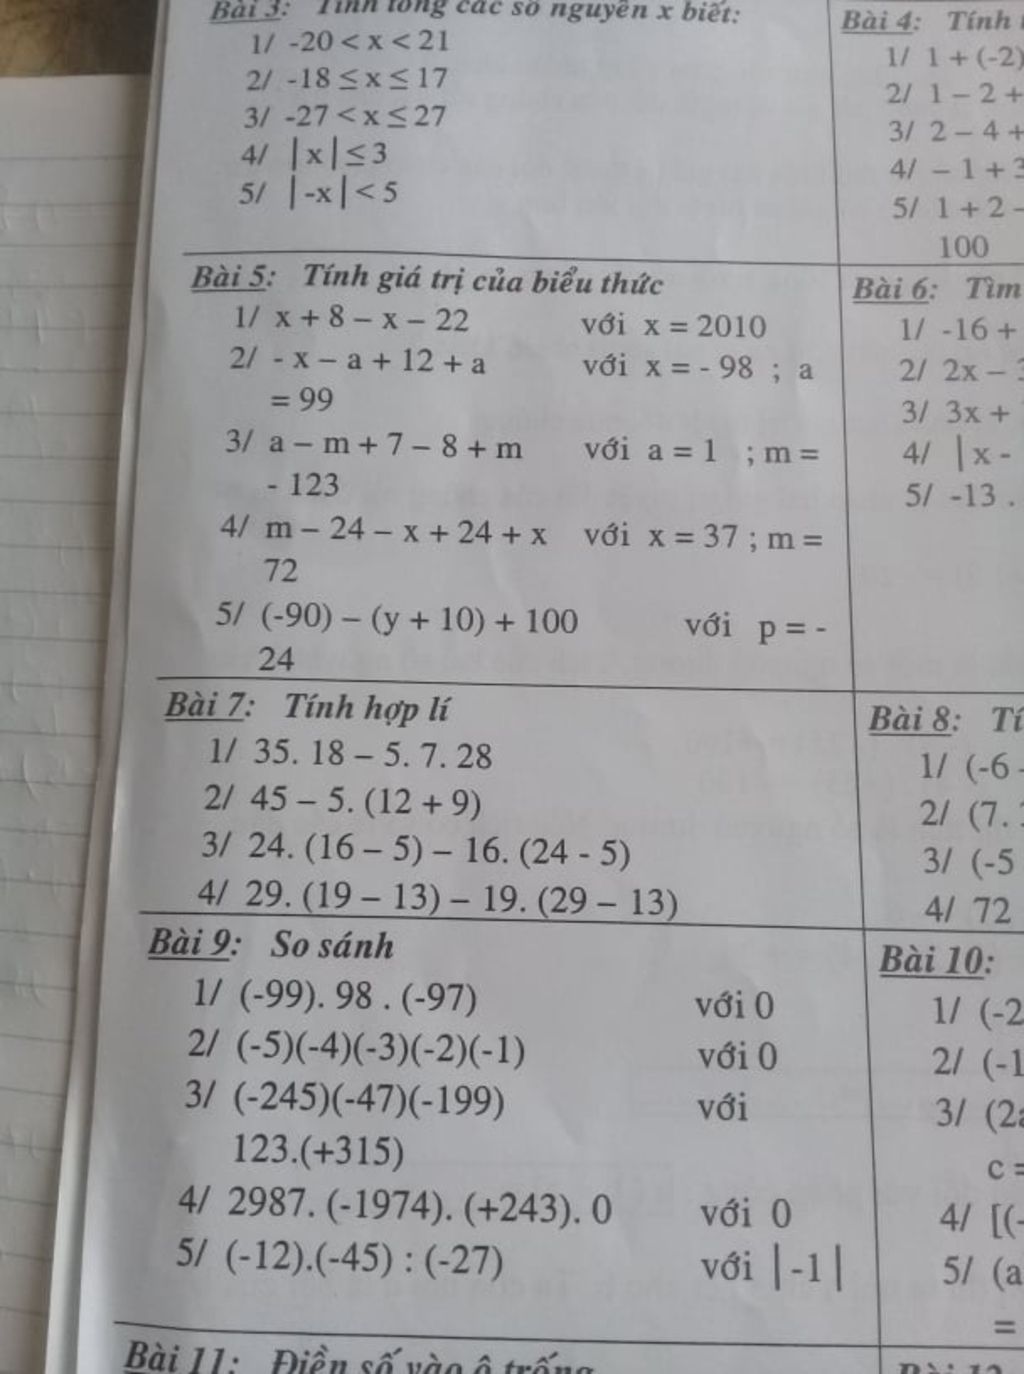 Bài 3: Tính tổng các số nguyên x biết:
1/ -20 < x < 21
2/ -18 ≤ x ≤ 17
3/ -27 < x ≤ 27
4/ |x| ≤ 3
5/ |-x| < 5
Bài 4: Tính
1/ 1 + (-2)
2/ 1 – 2 +
3/ 2 – 4 +
4/ – 1 + 3
5/ 1 + 2 -
100
Bài 5: Tính giá trị của biểu thức
1/ x + 8 – x – 22 với x = 2010
2/ - x – a + 12 + a với x = - 98 ; a
= 99
3/ a – m + 7 – 8 + m với a = 1 ; m =
- 123
4/ m – 24 – x + 24 + x với x = 37 ; m =
72
5/ (-90) – (y + 10) + 100 với p = -
24
Bài 6: Tìm
1/ -16 +
2/ 2x –
3/ 3x +
4/ |x -
5/ -13 .
Bài 7: Tính hợp lí
1/ 35. 18 – 5. 7. 28
2/ 45 – 5. (12 + 9)
3/ 24. (16 – 5) – 16. (24 - 5)
4/ 29. (19 – 13) – 19. (29 – 13)
Bài 8:
1/ (-6
2/ (7.
3/ (-5
4/ 72
Bài 9: So sánh
1/ (-99). 98 . (-97) với 0
2/ (-5)(-4)(-3)(-2)(-1) với 0
3/ (-245)(-47)(-199) với
123.(+315)
4/ 2987. (-1974). (+243). 0 với 0
5/ (-12).(-45) : (-27) với |-1|
Bài 10:
1/ (-2
2/ (-1
3/ (2a
c =
4/ [(-
5/ (a
=
Bài 11: Điền số vào ô trống